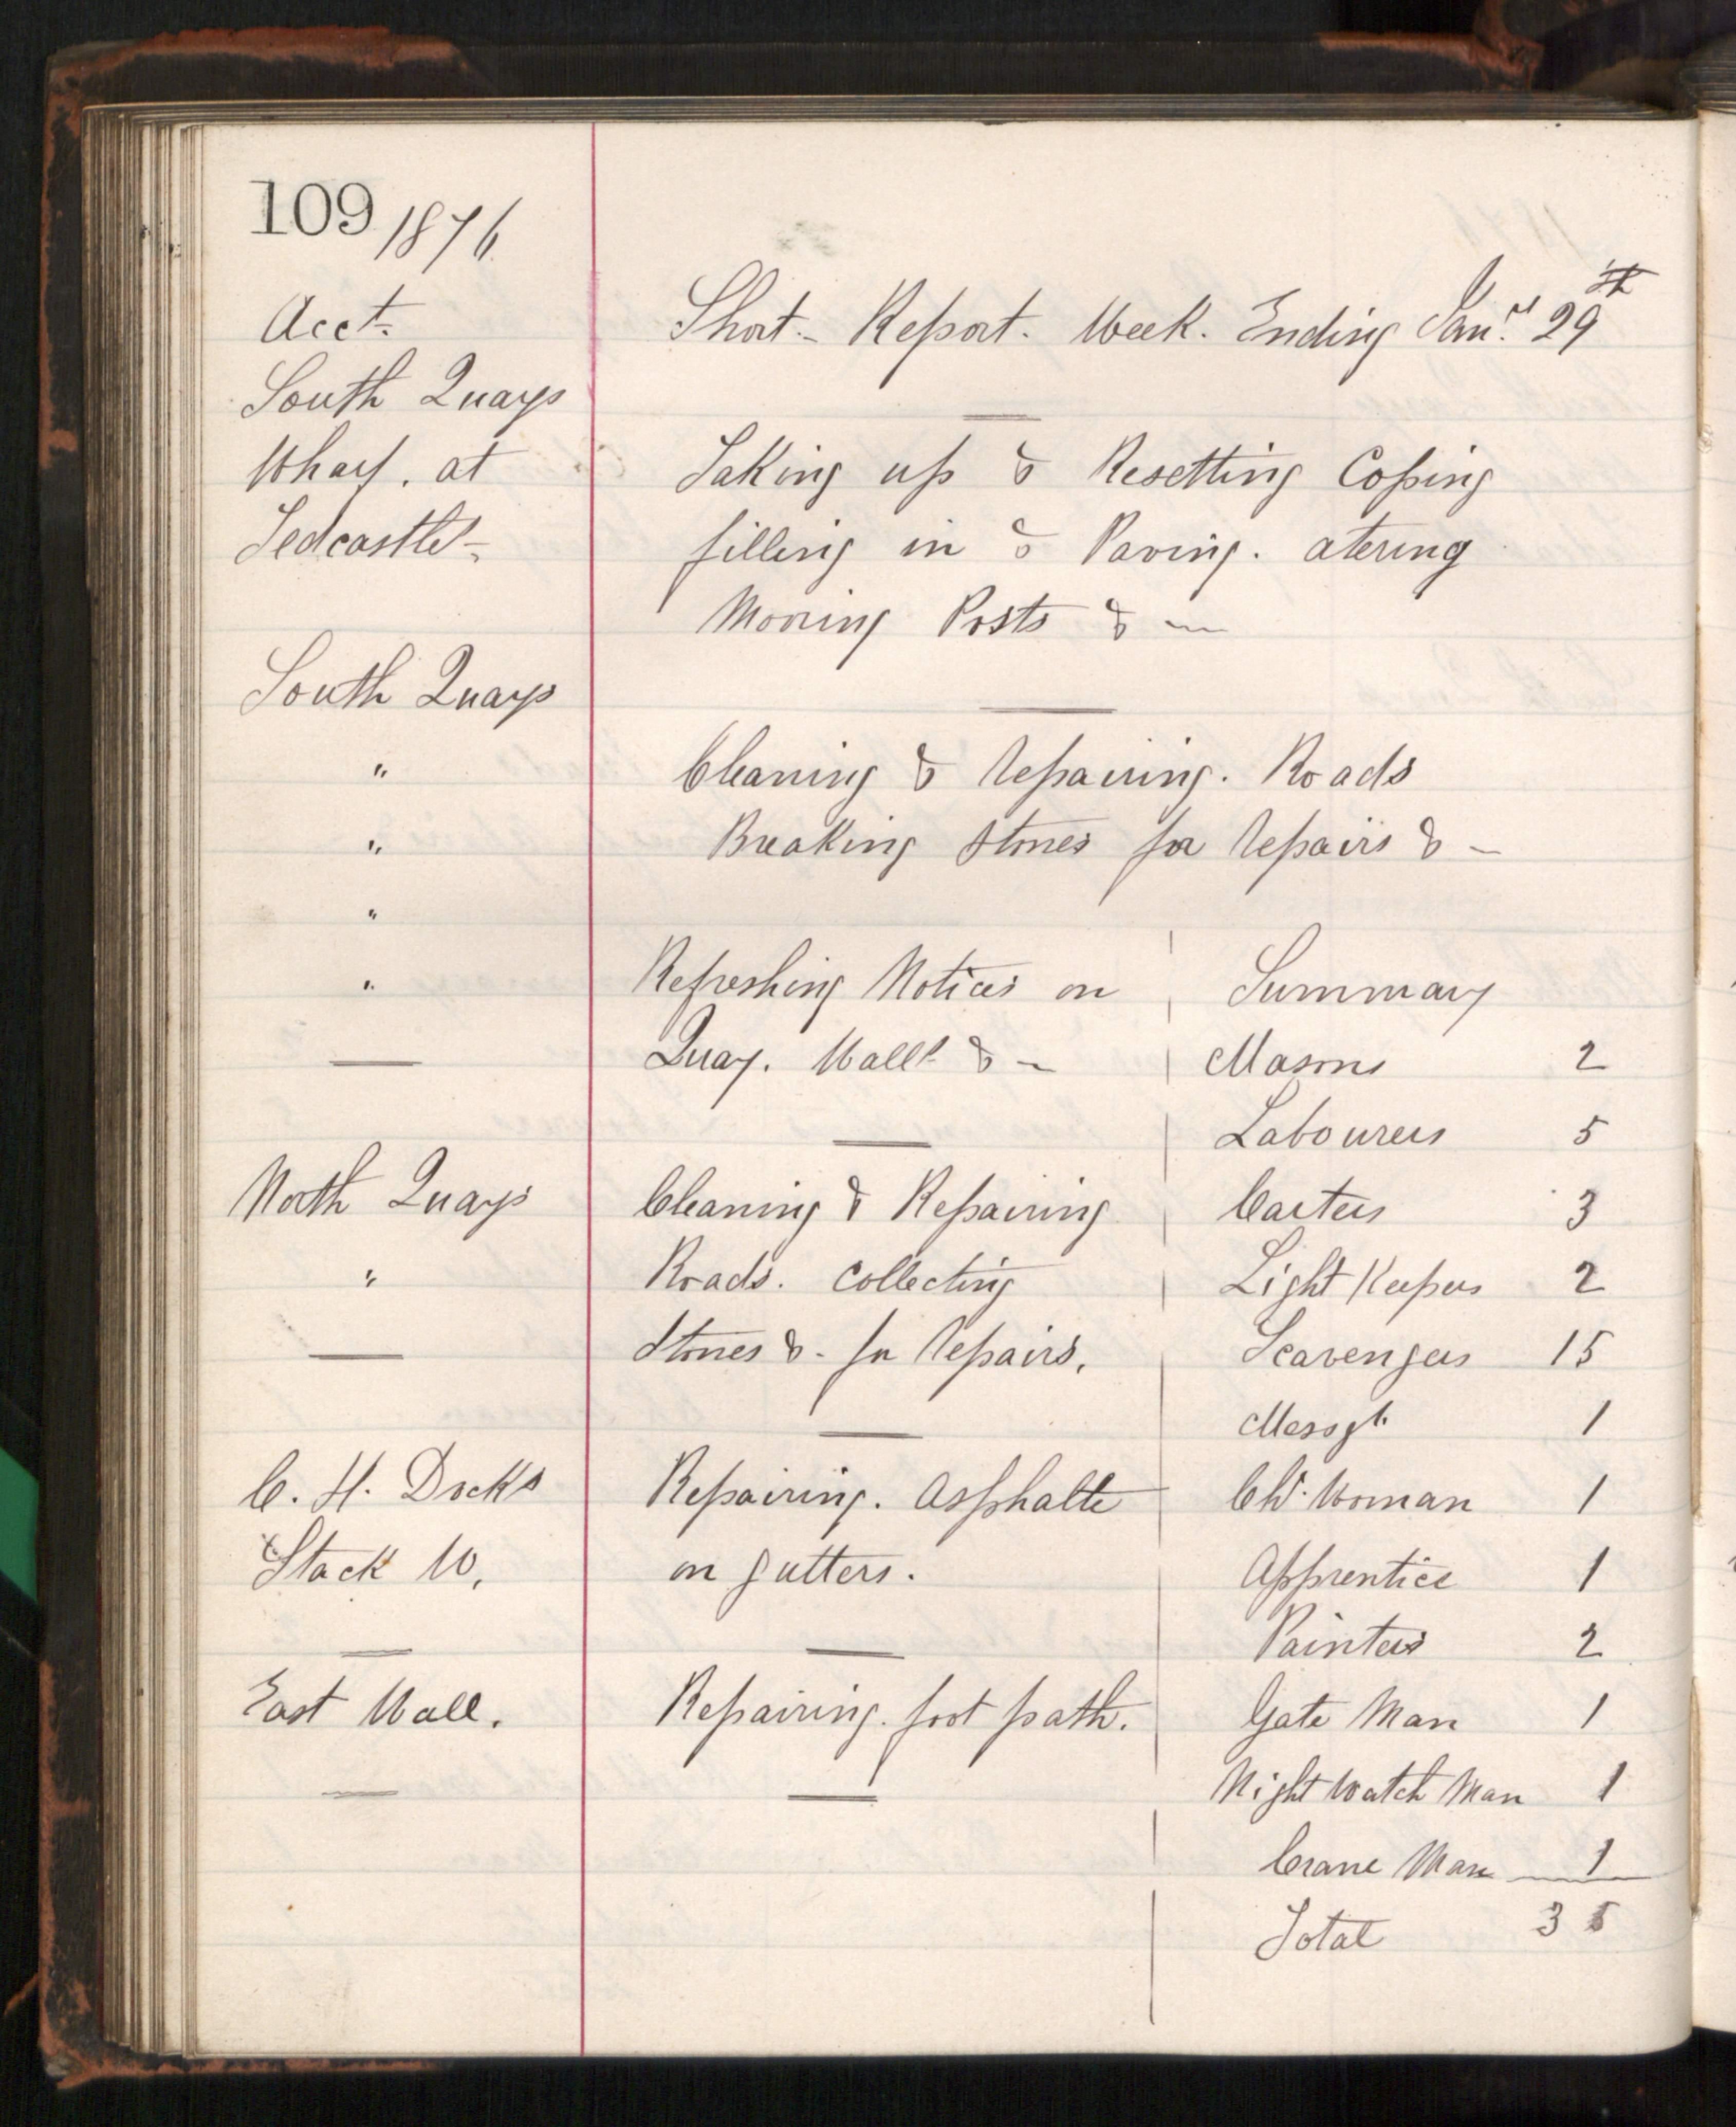 109 1876
Acct.
Short - Report. Week. Ending Jany. 29th
South Quays
Wharf. at
Tedcastle -
Taking up & Resetting Coping
filling in & Paving. atering
Mooring Posts & —
South Quays
"
Cleaning & Repairing. Roads
"
Breaking Stones for Repairs & -
"
"
Refreshing Notices on
Quay. Walls & -
Summary
Masons 2
Labourers 5
North Quays
Cleaning & Repairing
Carters 3
"
Roads. Collecting
Light Keepers 2
Stones &. for Repairs.
Scavengers 15
Messgr. 1
C. H. Docks
Repairing. Asphalte
Ch. Woman 1
Stack W,
on gutters.
Apprentice 1
Painters 2
East Wall.
Repairing. foot path.
Gate Man 1
Night Watch Man 1
Crane Man 1
Total 35